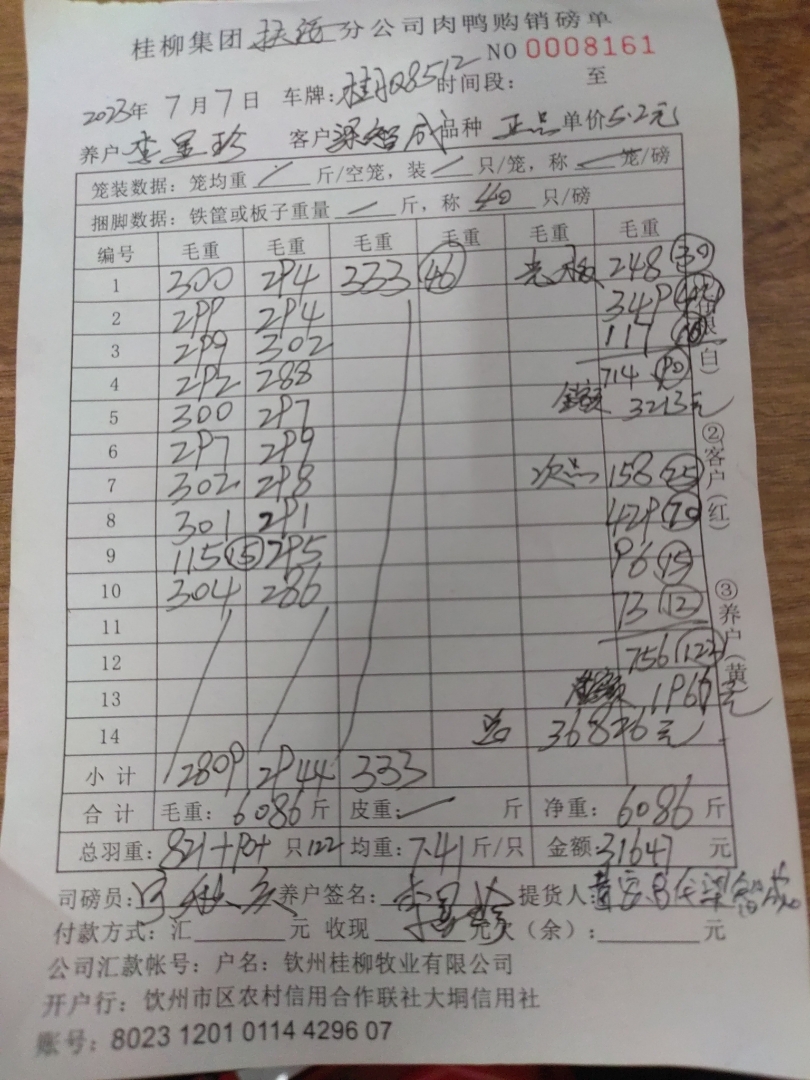 桂柳集团 分公司肉鸭购销磅单
NO 0008161
2023年 7月7日 车牌:桂 Q8512 时间段: 至
养户 李 珍 客户梁智成 品种 正品 单价5.2元
笼装数据:笼均重 / 斤/空笼,装 / 只/笼,称 / 笼/磅
捆脚数据:铁筐或板子重量 / 斤,称 40 只/磅
编号 毛重 毛重 毛重 毛重 毛重 毛重
1 300 294 333 46 248
2 299 294 349
3 299 302 117
4 292 288 714 90
5 300 297 金额 3213元
6 297 299
7 302 298 次品 158 25
8 301 291 429 70
9 115 15 295 96 15
10 304 286 73 12
11
12 756 122
13 金额 1966元
14 总 36826元
小计 2809 2944 333
合计 毛重:6086斤 皮重: / 斤 净重:6086斤
总羽重:821+90+ 只122 均重:7.41斤/只 金额:31647 元
司磅员: 养户签名:李 珍 提货人:
付款方式:汇 元 收现 元欠(余): 元
公司汇款帐号:户名:钦州桂柳牧业有限公司
开户行:饮州市区农村信用合作联社大垌信用社
账号:8023 1201 0114 4296 07
白)
②客户(红)
③养户(黄)